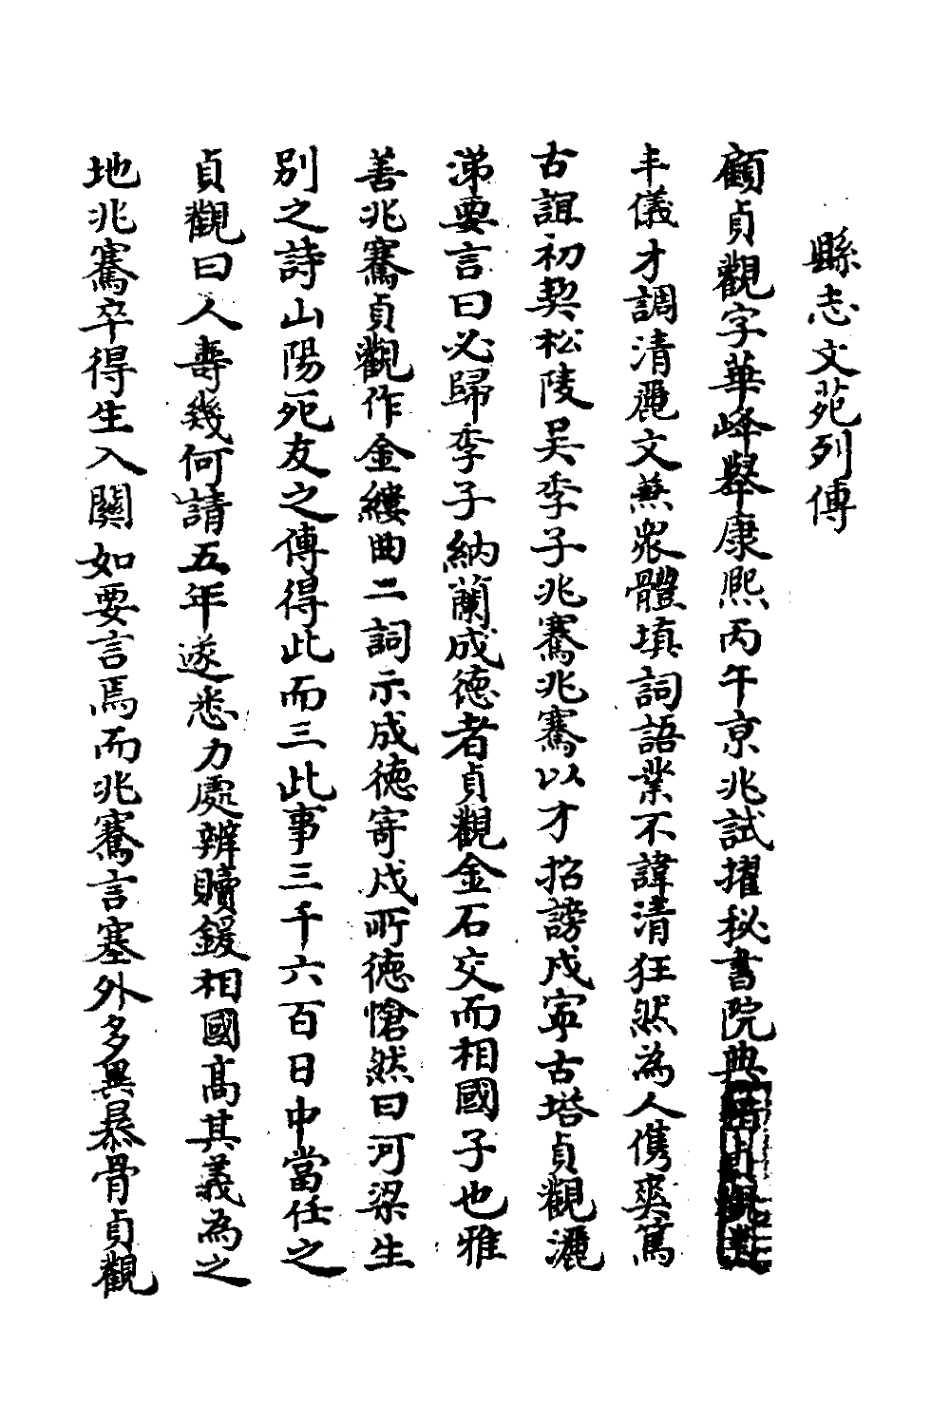 縣志文苑列傳
顧貞觀字華峰舉康熙丙午京兆試擢秘書院典籍貞觀美
丰儀才調清麗文兼衆體填詞語業不諱清狂然為人儁爽篤
古誼初契松陵吳季子兆騫兆騫以才招謗戍寧古塔貞觀灑
涕要言曰必歸季子納蘭成德者貞觀金石交而相國子也雅
善兆騫貞觀作金縷曲二詞示成德寄戍所德愴然曰河梁生
別之詩山陽死友之傳得此而三此事三千六百日中當任之
貞觀曰人壽幾何請五年遂悉力處辦贖鍰相國高其義為之
地兆騫卒得生入關如要言焉而兆騫言塞外多異暴骨貞觀